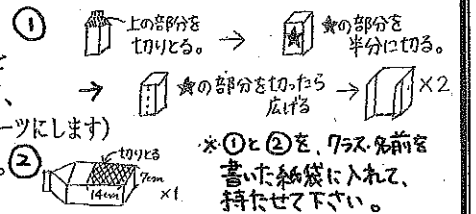 ① 上の部分を
切りとる。 → ★の部分を
半分に切る。
と
→ ★の部分を切ったら
広げる → ×2
、
ーツにします)
。② 切りとる
7cm
14cm
×1
※①と②を、クラス・名前を
書いた紙袋に入れて、
持たせて下さい。